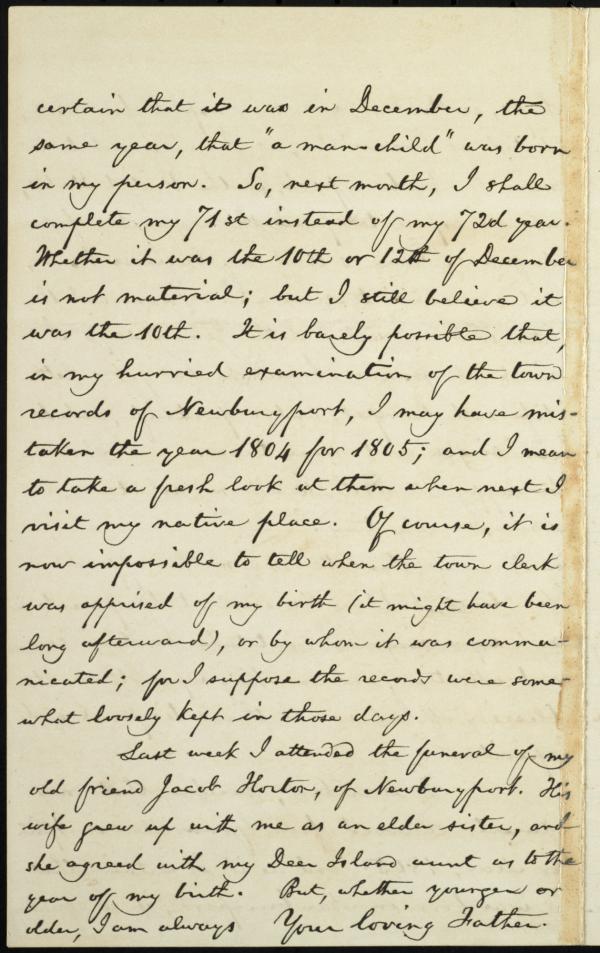 certain that it was in December, the
same year, that "a man-child" was born
in my person. So, next month, I shall
complete my 71st instead of my 72d year.
Whether it was the 10th or 12th of December
is not material; but I still believe it
was the 10th. It is barely possible that,
in my hurried examination of the town
records of Newburyport, I may have mis-
taken the year 1804 for 1805; and I mean
to take a fresh look at them when next I
visit my native place. Of course, it is
now impossible to tell when the town clerk
was apprised of my birth (it might have been
long afterward), or by whom it was commu-
nicated; for I suppose the records were some-
what loosely kept in those days.
Last week I attended the funeral of my
old friend Jacob Horton, of Newburyport. His
wife grew up with me as an elder sister, and
she agreed with my Deer Island aunt as to the
year of my birth. But, whether younger or
older, I am always Your loving Father.